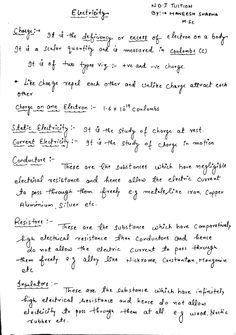 N.D.J TUITION
Electricity
By:- MANGESH SHARMA
M.Sc
Charge:- It is the deficiency or excess of electron on a body.
It is a scalar quantity and is measured in coulombs (c)
It is of two types viz:- +ve and -ve charge.
* Like charge repel each other and unlike charge attract each
other
Charge on one Electron:- 1.6 x 10¹⁹ Coulombs
Static Electricity:- It is the study of charge at rest.
Current Electricity:- It is the study of charge in motion
Conductors:-
These are the substances which have negligible
electrical resistance and hence allow the electric current
to pass through them freely e.g metals like iron, Copper
Aluminium Silver etc.
Resistors:-
These are the substance which have Comparatively
high electrical resistance than Conductors and hence
do not allow the electric Current to pass through
them freely e.g alloy like Nichrome, Constantan, Manganin
etc
Insulators:-
These are the substance which have infinitely
high electrical resistance and hence do not allow
electricity to pass through them at all e.g wood, Plastic
rubber etc.